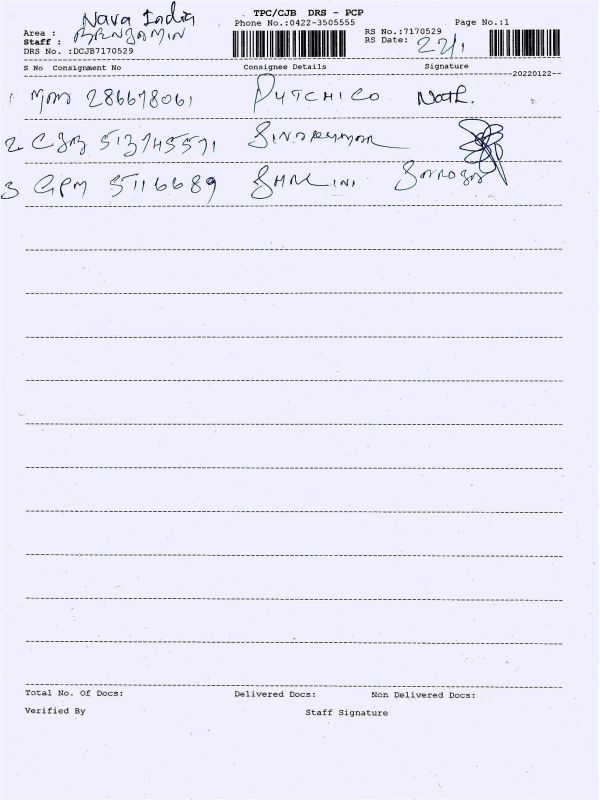 TPC/CJB DRS - PCP
Phone No.:0422-3505555
Page No.:1
Area : Nava India
Staff : BENJAMIN
DRS No. :DCJB7170529
RS No.:7170529
RS Date: 22/1
S No Consignment No Consignee Details Signature
--20220122--
1 286678061 DUTCHICO
2 CJB 513745571
3 GPM 51166689 SHALINI
Total No. Of Docs: Delivered Docs: Non Delivered Docs:
Verified By Staff Signature